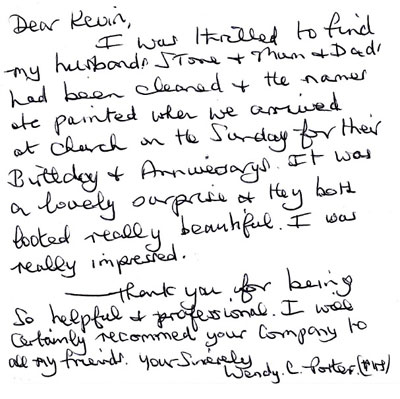 Dear Kevin,
I was thrilled to find
my husbands Stone + Mum + Dads
had been cleaned + the names
etc painted when we arrived
at Church on the Sunday for their
Birthday + Anniversary. It was
a lovely surprise & they both
looked really beautiful. I was
really impressed.
Thank you for being
So helpful + professional. I will
Certainly recommed your Company to
all my friends. Your Sincerely
Wendy. C. Porter. (Mrs)